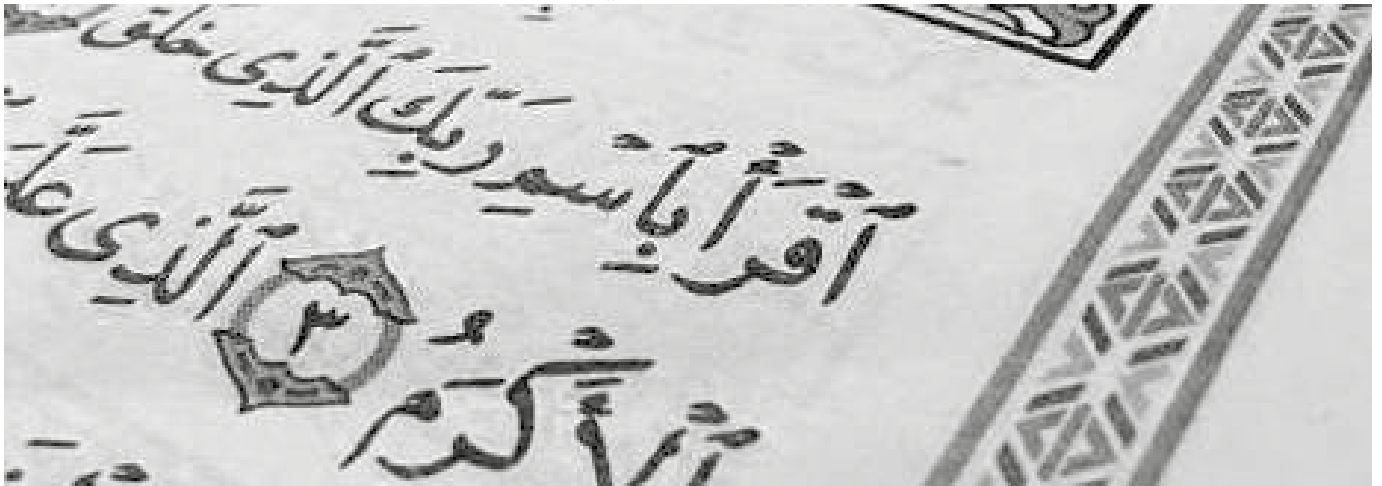 ٱقْرَأْ بِٱسْمِ رَبِّكَ ٱلَّذِي خَلَقَ
ٱلْأَكْرَمُ ٣ ٱلَّذِي عَلَّمَ